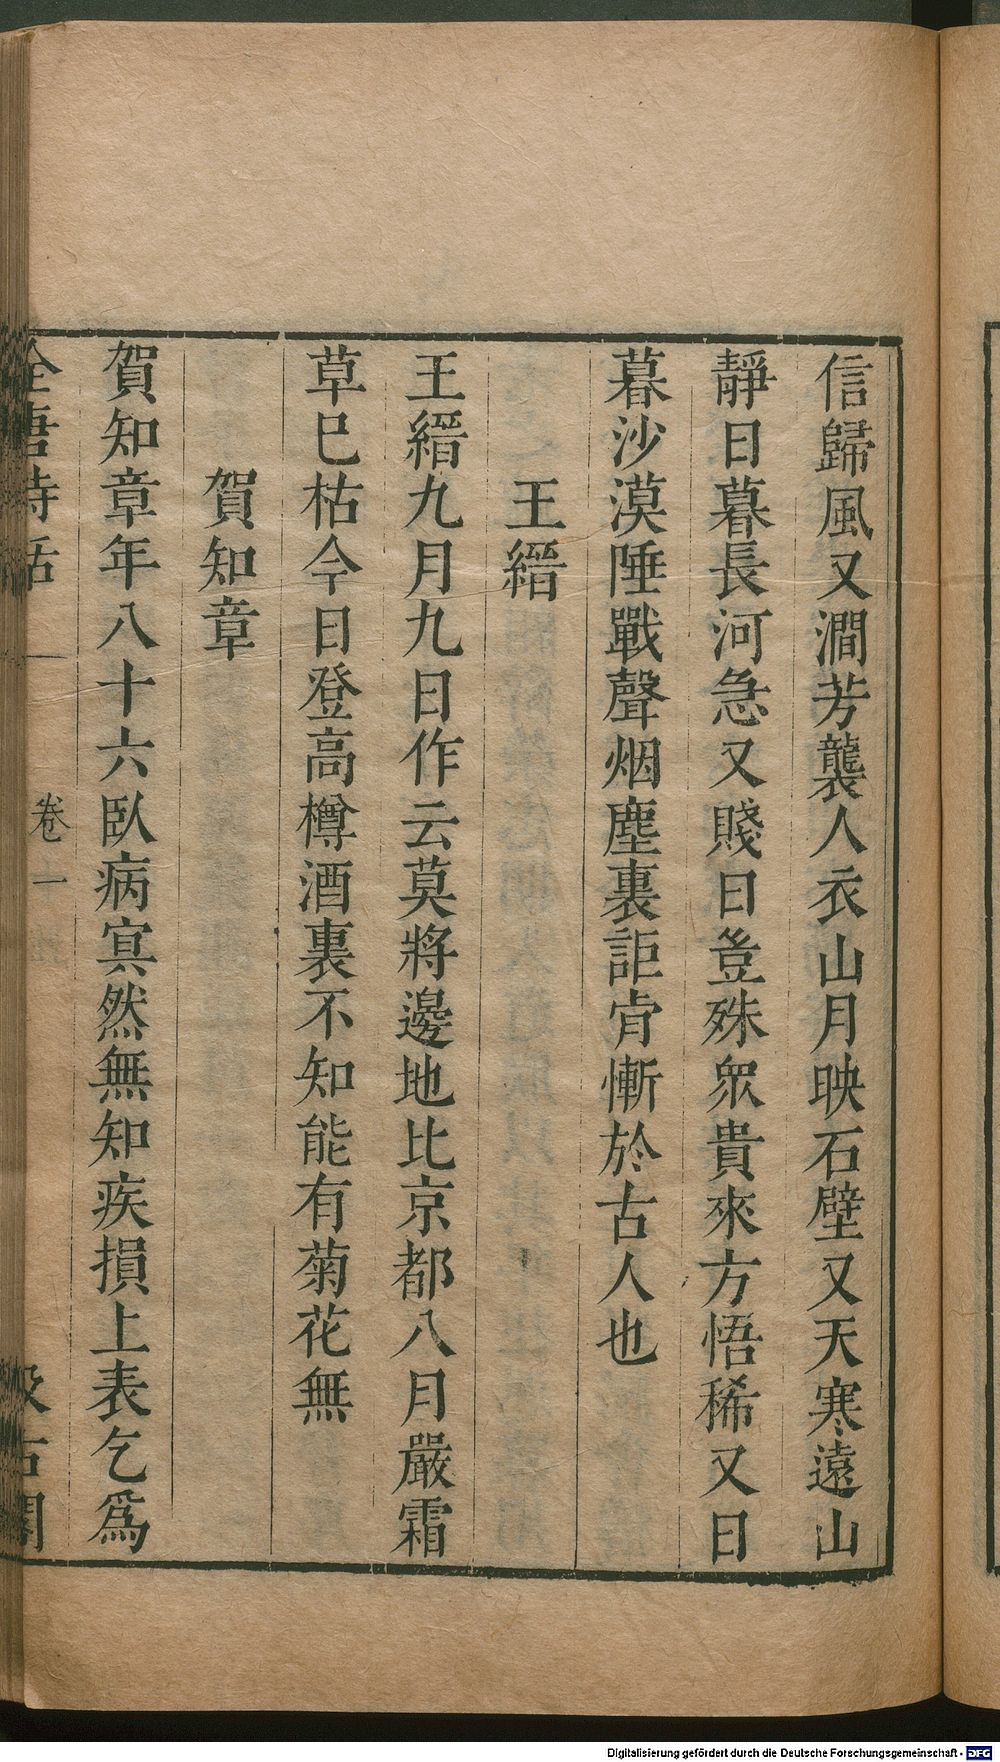 信歸風又澗芳襲人衣山月映石壁又天寒遠山
靜日暮長河急又賤日豈殊衆貴來方悟稀又日
暮沙漠陲戰聲烟塵裏詎肯慚於古人也
王縉
王縉九月九日作云莫將邊地比京都八月嚴霜
草巳枯今日登高樽酒裏不知能有菊花無
賀知章
賀知章年八十六臥病冥然無知疾損上表乞爲
全唐詩話
卷一
汲古閣
Digitalisierung gefördert durch die Deutsche Forschungsgemeinschaft - DFG